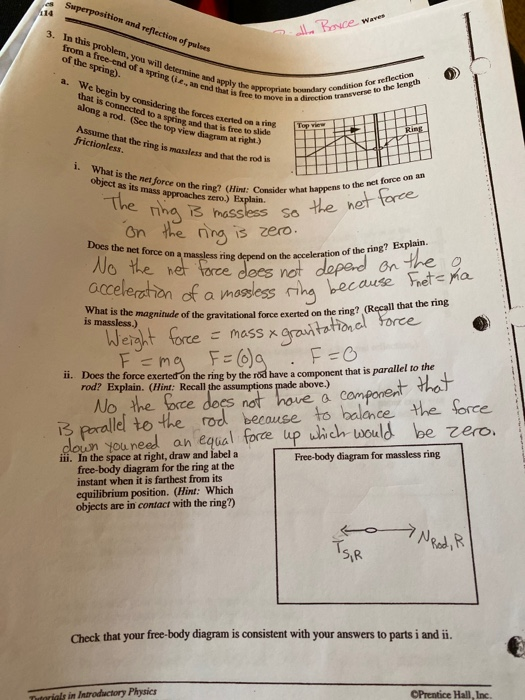 114
Superposition and reflection of pulses
Bounce Waves
3. In this problem, you will determine and apply the appropriate boundary condition for reflection
from a free-end of a spring (i.e., an end that is free to move in a direction transverse to the length
of the spring).
a. We begin by considering the forces exerted on a ring
that is connected to a spring and that is free to slide
along a rod. (See the top view diagram at right.)
Top view
Ring
Assume that the ring is massless and that the rod is
frictionless.
i. What is the net force on the ring? (Hint: Consider what happens to the net force on an
object as its mass approaches zero.) Explain.
The ring is massless so the net force
on the ring is zero.
Does the net force on a massless ring depend on the acceleration of the ring? Explain.
No the net force does not depend on the
acceleration of a massless ring because Fnet = ma
0
What is the magnitude of the gravitational force exerted on the ring? (Recall that the ring
is massless.)
Weight force = mass x gravitational force
F = mg F=(0)g . F=0
ii. Does the force exerted on the ring by the rod have a component that is parallel to the
rod? Explain. (Hint: Recall the assumptions made above.)
No, the force does not have a component that
is parallel to the rod because to balance the force
down you need an equal force up which would be zero.
iii. In the space at right, draw and label a
free-body diagram for the ring at the
instant when it is farthest from its
equilibrium position. (Hint: Which
objects are in contact with the ring?)
Free-body diagram for massless ring
TS,R
NRod,R
Check that your free-body diagram is consistent with your answers to parts i and ii.
Tutorials in Introductory Physics
©Prentice Hall, Inc.